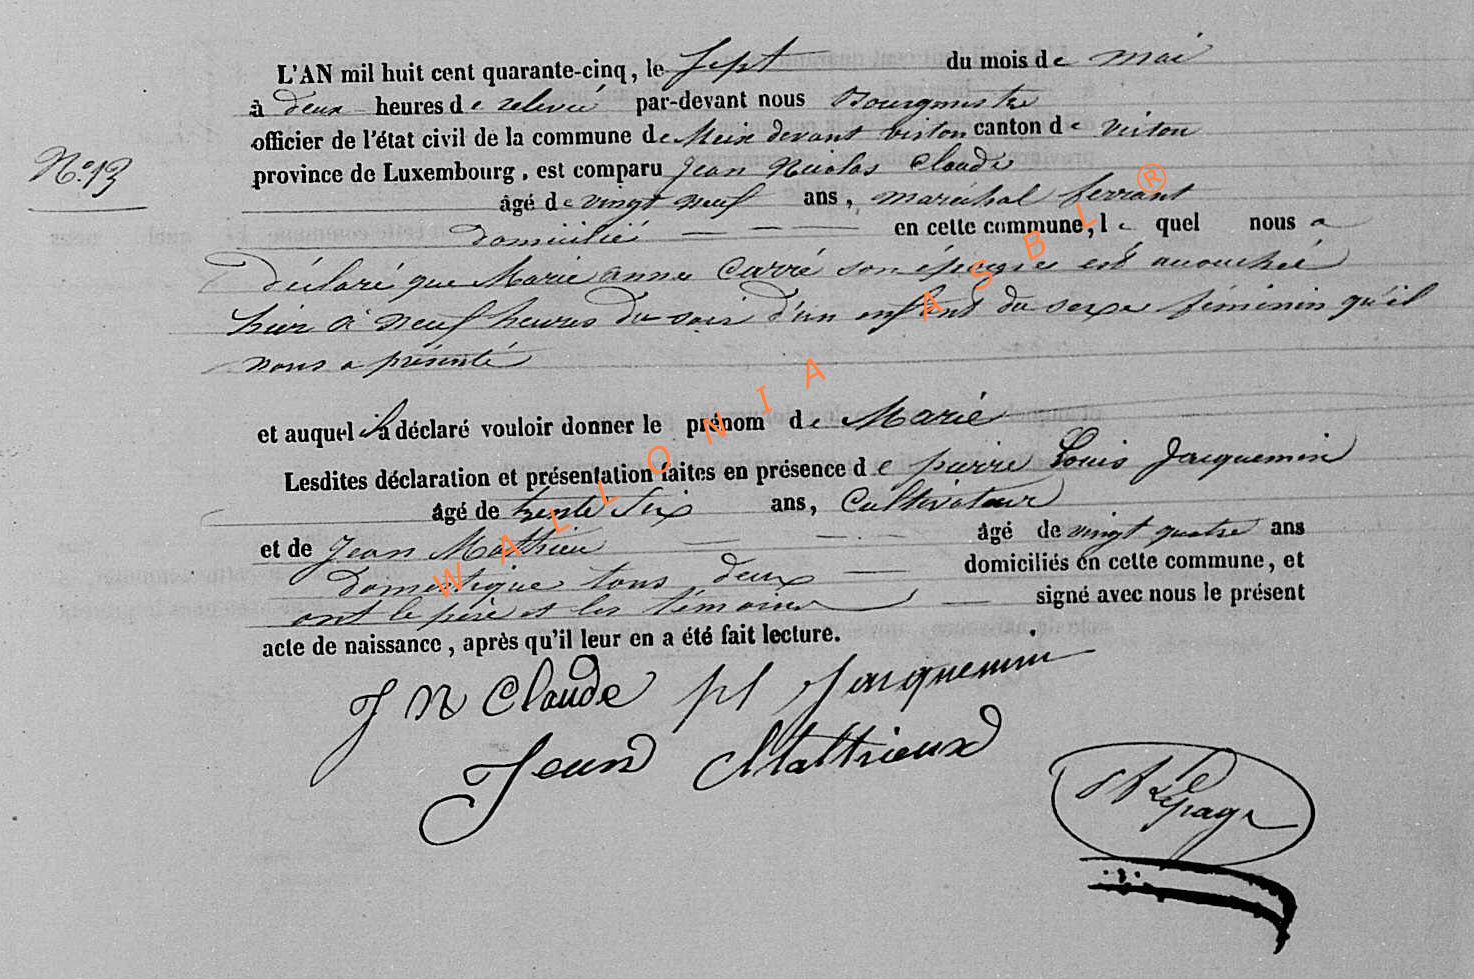 L'AN mil huit cent quarante-cinq, le sept du mois de mai
à deux heures de relevée par-devant nous Bourgmestre
officier de l'état civil de la commune de Meix devant virton canton de virton
N° 13
province de Luxembourg, est comparu Jean Nicolas Claude
âgé de vingt neuf ans, maréchal ferrant
domicilié en cette commune, lequel nous a
déclaré que Marie anne Carré son épouse est accouchée
hier à neuf heures du soir d'un enfant du sexe féminin qu'il
nous a présenté
et auquel il a déclaré vouloir donner le prénom de Marie
Lesdites déclaration et présentation faites en présence de pierre Louis Jacquemin
âgé de trente six ans, Cultivateur
et de Jean Mathieu âgé de vingt quatre ans
domestique tous deux domiciliés en cette commune, et
ont le père et les témoins signé avec nous le présent
acte de naissance, après qu'il leur en a été fait lecture.
J N Claude pl Jacquemin
Jean Matthieux
Lepage
WALLONIA ASBL ®